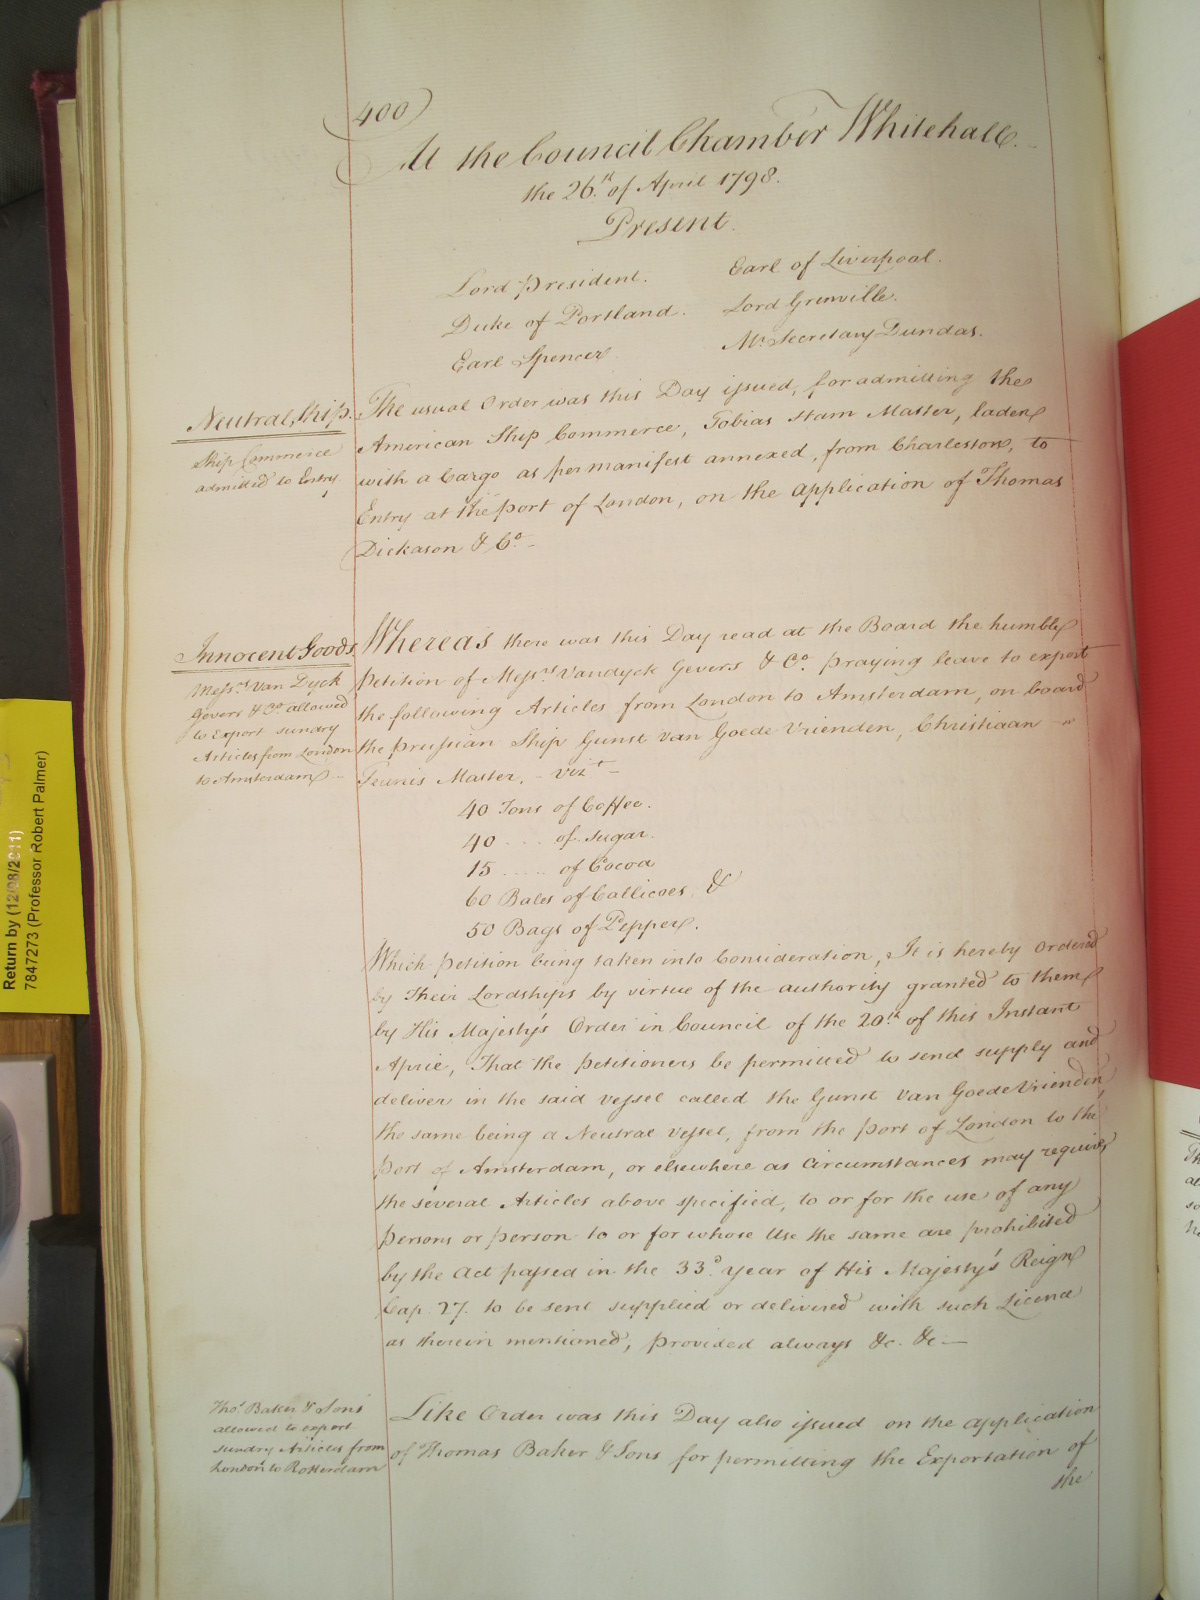 400
At the Council Chamber Whitehall.
the 26th of April 1798.
Present.
Lord President. Earl of Liverpool.
Duke of Portland. Lord Grenville.
Earl Spencer Mr Secretary Dundas.
Neutral Ship.
Ship Commerce
admitted to Entry
The usual Order was this Day issued, for admitting the
American Ship Commerce, Tobias Stam Master, laden
with a Cargo as per manifest annexed, from Charleston, to
Entry at the port of London, on the application of Thomas
Dickason & Co. -
Innocent Goods
Messrs Van Dyck
Gevers & Co allowed
to Export sundry
Articles from London
to Amsterdam -
Whereas there was this Day read at the Board the humble
Petition of Messrs Vandyck Gevers & Co. praying leave to export
the following Articles from London to Amsterdam, on board
the Prussian Ship Gunst van Goede Vrienden, Christiaan
Teunis Master, - vizt -
40 Tons of Coffee.
40 .... of Sugar.
15 ..... of Cocoa
60 Bales of Callicoes &
50 Bags of Pepper.
Which Petition being taken into Consideration, It is hereby Ordered
by Their Lordships by virtue of the authority granted to them
by His Majesty's Order in Council of the 20th of this Instant
April, That the Petitioners be permitted to send supply and
deliver in the said Vessel called the Gunst van Goede Vrienden
the same being a Neutral Vessel, from the Port of London to the
Port of Amsterdam, or elsewhere as Circumstances may require
the several Articles above specified, to or for the use of any
persons or person to or for whose Use the same are prohibited
by the Act passed in the 33d. year of His Majesty's Reign
Cap. 27. to be sent supplied or delivered with such Licence
as therein mentioned, provided always &c. &c —
Thos Baker & Sons
allowed to export
sundry Articles from
London to Rotterdam
Like Order was this Day also issued on the application
of Thomas Baker & Sons for permitting the Exportation of
the
Return by (12/08/2011)
7847273 (Professor Robert Palmer)